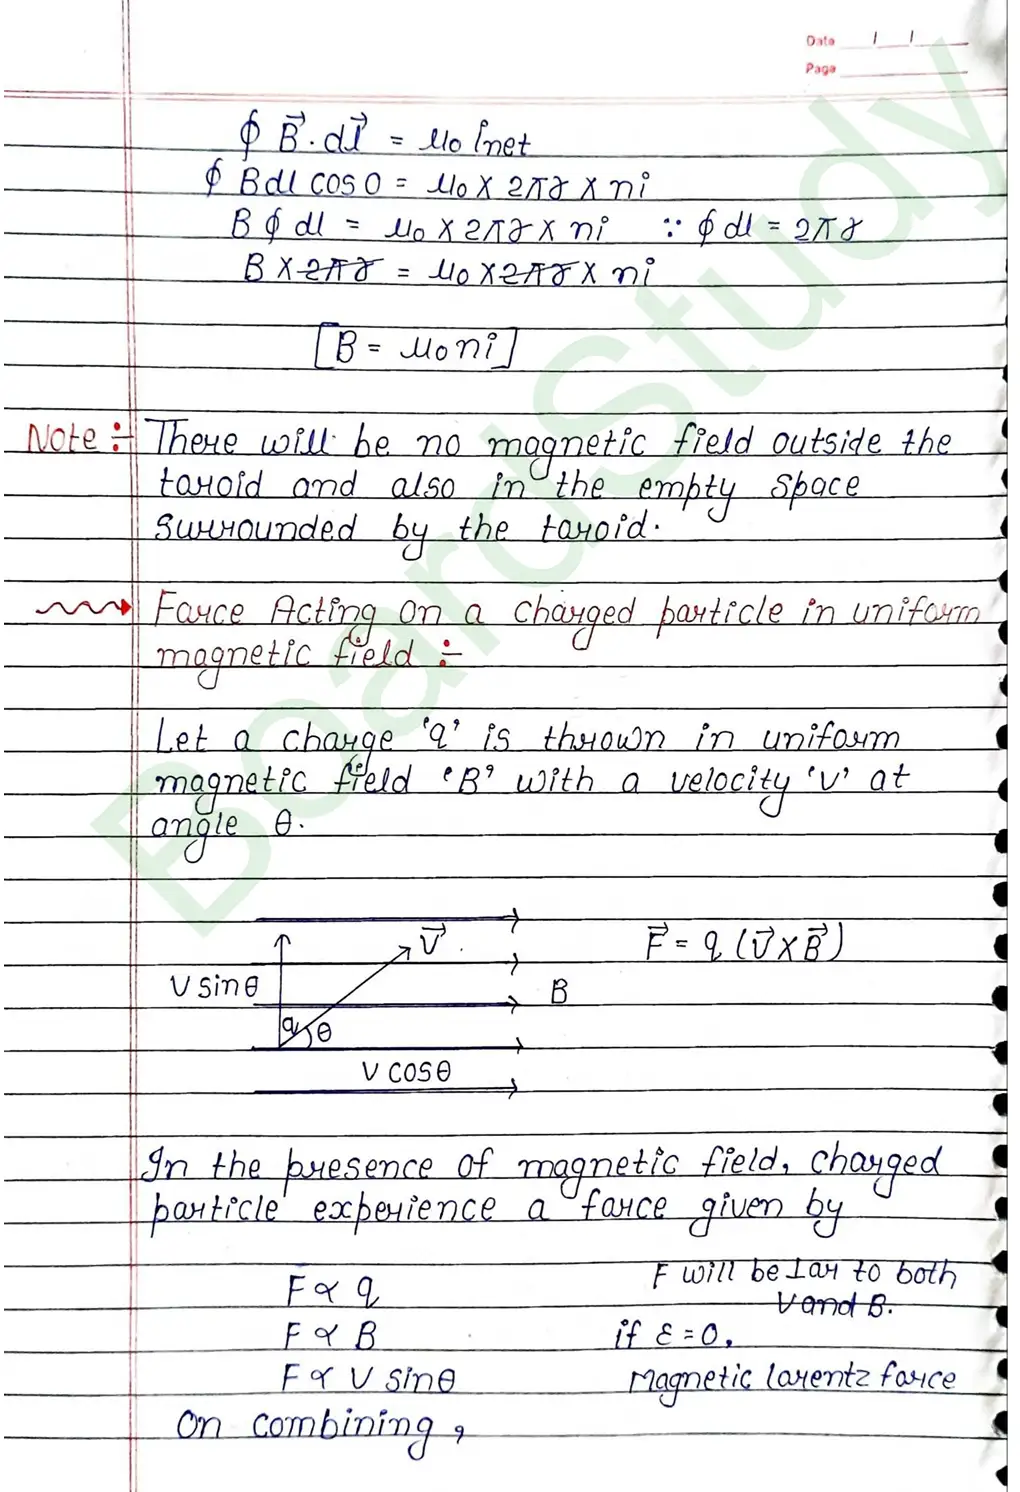 Date / /
Page
∮ B⃗ · dl⃗ = μ₀ inet
∮ B dl cos 0 = μ₀ × 2πr × ni
B ∮ dl = μ₀ × 2πr × ni ∵ ∮ dl = 2πr
B × 2πr = μ₀ × 2πr × ni
[B = μ₀ ni]
Note ÷ There will be no magnetic field outside the
toroid and also in the empty space
surrounded by the toroid.
Force Acting on a charged particle in uniform
magnetic field ÷
Let a charge 'q' is thrown in uniform
magnetic field 'B' with a velocity 'v' at
angle θ.
V⃗
F⃗ = q (V⃗ × B⃗)
V sinθ
B
q θ
V cosθ
In the presence of magnetic field, charged
particle experience a force given by
F ∝ q
F will be ⊥ar to both
V and B.
F ∝ B
if ε = 0,
F ∝ V sinθ
Magnetic Lorentz force
On combining,
BoardStudy